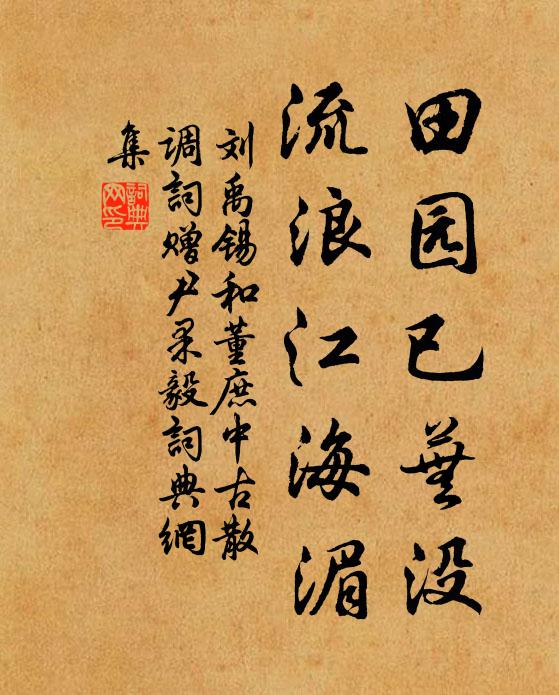 田园已芜没
流浪江海湄
刘禹锡和董庶中古散
调词赠尹果毅词典網
集
詞典
网印